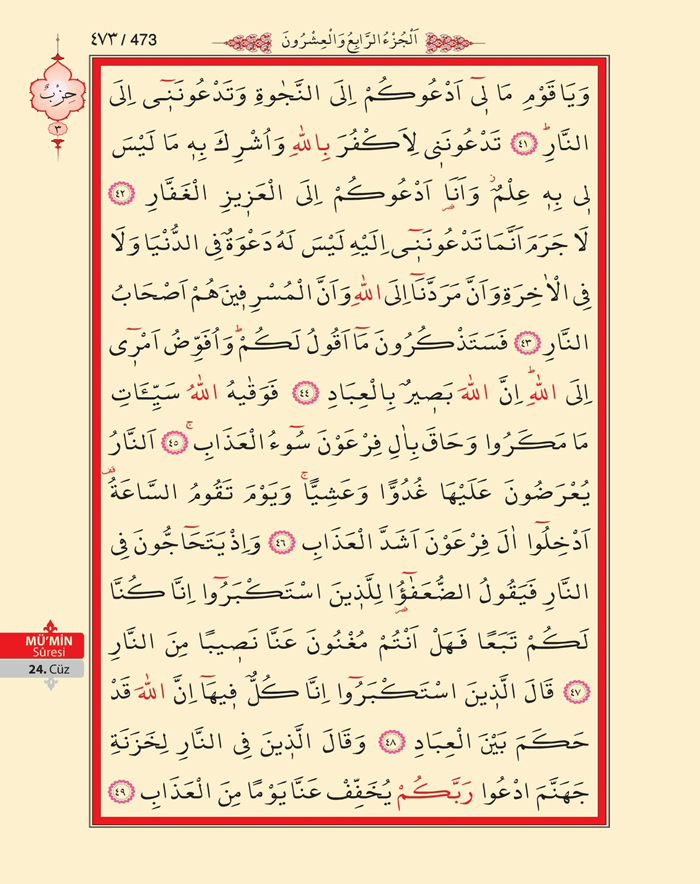 ٤٧٣ / 473
اَلْجُزْءُ الرَّابِعُ وَالْعِشْرُونَ
حِزْبٌ
٣
وَيَا قَوْمِ مَا لِٓي اَدْعُوكُمْ اِلَى النَّجٰوةِ وَتَدْعُونَنِٓي اِلَى
النَّارِۜ ﴿٤١﴾ تَدْعُونَنِي لِاَكْفُرَ بِاللّٰهِ وَاُشْرِكَ بِهٖ مَا لَيْسَ
لِي بِهٖ عِلْمٌۘ وَاَنَا۬ اَدْعُوكُمْ اِلَى الْعَزِيزِ الْغَفَّارِ ﴿٤٢﴾
لَا جَرَمَ اَنَّمَا تَدْعُونَنِٓي اِلَيْهِ لَيْسَ لَهُ دَعْوَةٌ فِي الدُّنْيَا وَلَا
فِي الْاٰخِرَةِ وَاَنَّ مَرَدَّنَٓا اِلَى اللّٰهِ وَاَنَّ الْمُسْرِفِينَ هُمْ اَصْحَابُ
النَّارِ ﴿٤٣﴾ فَسَتَذْكُرُونَ مَٓا اَقُولُ لَكُمْۜ وَاُفَوِّضُ اَمْرِٓي
اِلَى اللّٰهِۜ اِنَّ اللّٰهَ بَصِيرٌ بِالْعِبَادِ ﴿٤٤﴾ فَوَقٰيهُ اللّٰهُ سَيِّـَٔاتِ
مَا مَكَرُوا وَحَاقَ بِاٰلِ فِرْعَوْنَ سُٓوءُ الْعَذَابِۚ ﴿٤٥﴾ اَلنَّارُ
يُعْرَضُونَ عَلَيْهَا غُدُوًّا وَعَشِيًّاۚ وَيَوْمَ تَقُومُ السَّاعَةُ۠
اَدْخِلُٓوا اٰلَ فِرْعَوْنَ اَشَدَّ الْعَذَابِ ﴿٤٦﴾ وَاِذْ يَتَحَٓاجُّونَ فِي
النَّارِ فَيَقُولُ الضُّعَفٰٓؤُ۬ا لِلَّذِينَ اسْتَكْبَرُٓوا اِنَّا كُنَّا
لَكُمْ تَبَعًا فَهَلْ اَنْتُمْ مُغْنُونَ عَنَّا نَصِيبًا مِنَ النَّارِ
﴿٤٧﴾ قَالَ الَّذِينَ اسْتَكْبَرُٓوا اِنَّا كُلٌّ فِيهَٓا اِنَّ اللّٰهَ قَدْ
حَكَمَ بَيْنَ الْعِبَادِ ﴿٤٨﴾ وَقَالَ الَّذِينَ فِي النَّارِ لِخَزَنَةِ
جَهَنَّمَ ادْعُوا رَبَّكُمْ يُخَفِّفْ عَنَّا يَوْمًا مِنَ الْعَذَابِ ﴿٤٩﴾
MÜ'MİN
Sûresi
24. Cüz